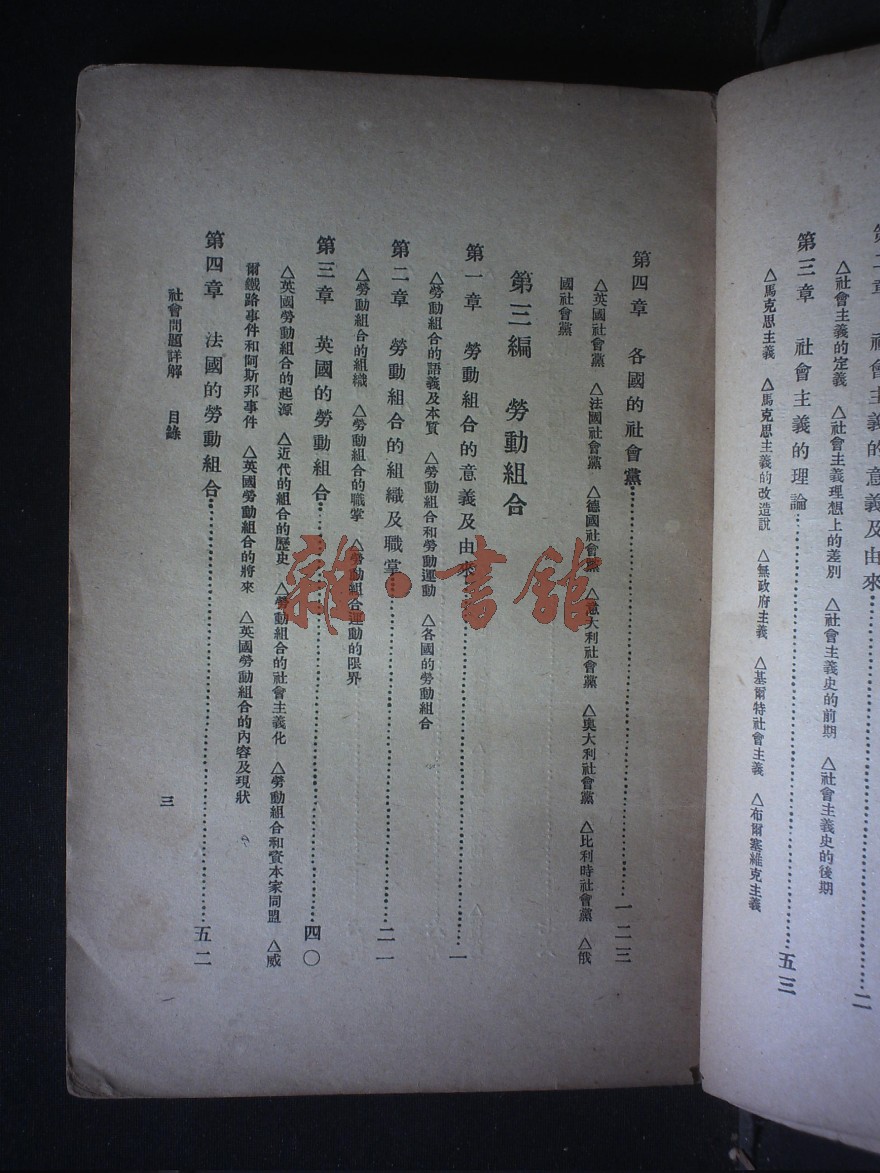 章 社會主義的意義及由來 二
△社會主義的定義 △社會主義理想上的差別 △社會主義史的前期 △社會主義史的後期
第三章 社會主義的理論 五三
△馬克思主義 △馬克思主義的改造說 △無政府主義 △基爾特社會主義 △布爾塞維克主義
第四章 各國的社會黨 一二三
△英國社會黨 △法國社會黨 △德國社會黨 △意大利社會黨 △奧大利社會黨 △比利時社會黨 △俄
國社會黨
第三編 勞動組合
第一章 勞動組合的意義及由來 一
△勞動組合的語義及本質 △勞動組合和勞動運動 △各國的勞動組合
第二章 勞動組合的組織及職掌 二一
△勞動組合的組織 △勞動組合的職掌 △勞動組合運動的限界
第三章 英國的勞動組合 四〇
△英國勞動組合的起源 △近代的組合的歷史 △勞動組合的社會主義化 △勞動組合和資本家同盟 △威
爾鐵路事件和阿斯邦事件 △英國勞動組合的將來 △英國勞動組合的內容及現狀
第四章 法國的勞動組合 五二
社會問題詳解 目錄
三
雜·書館